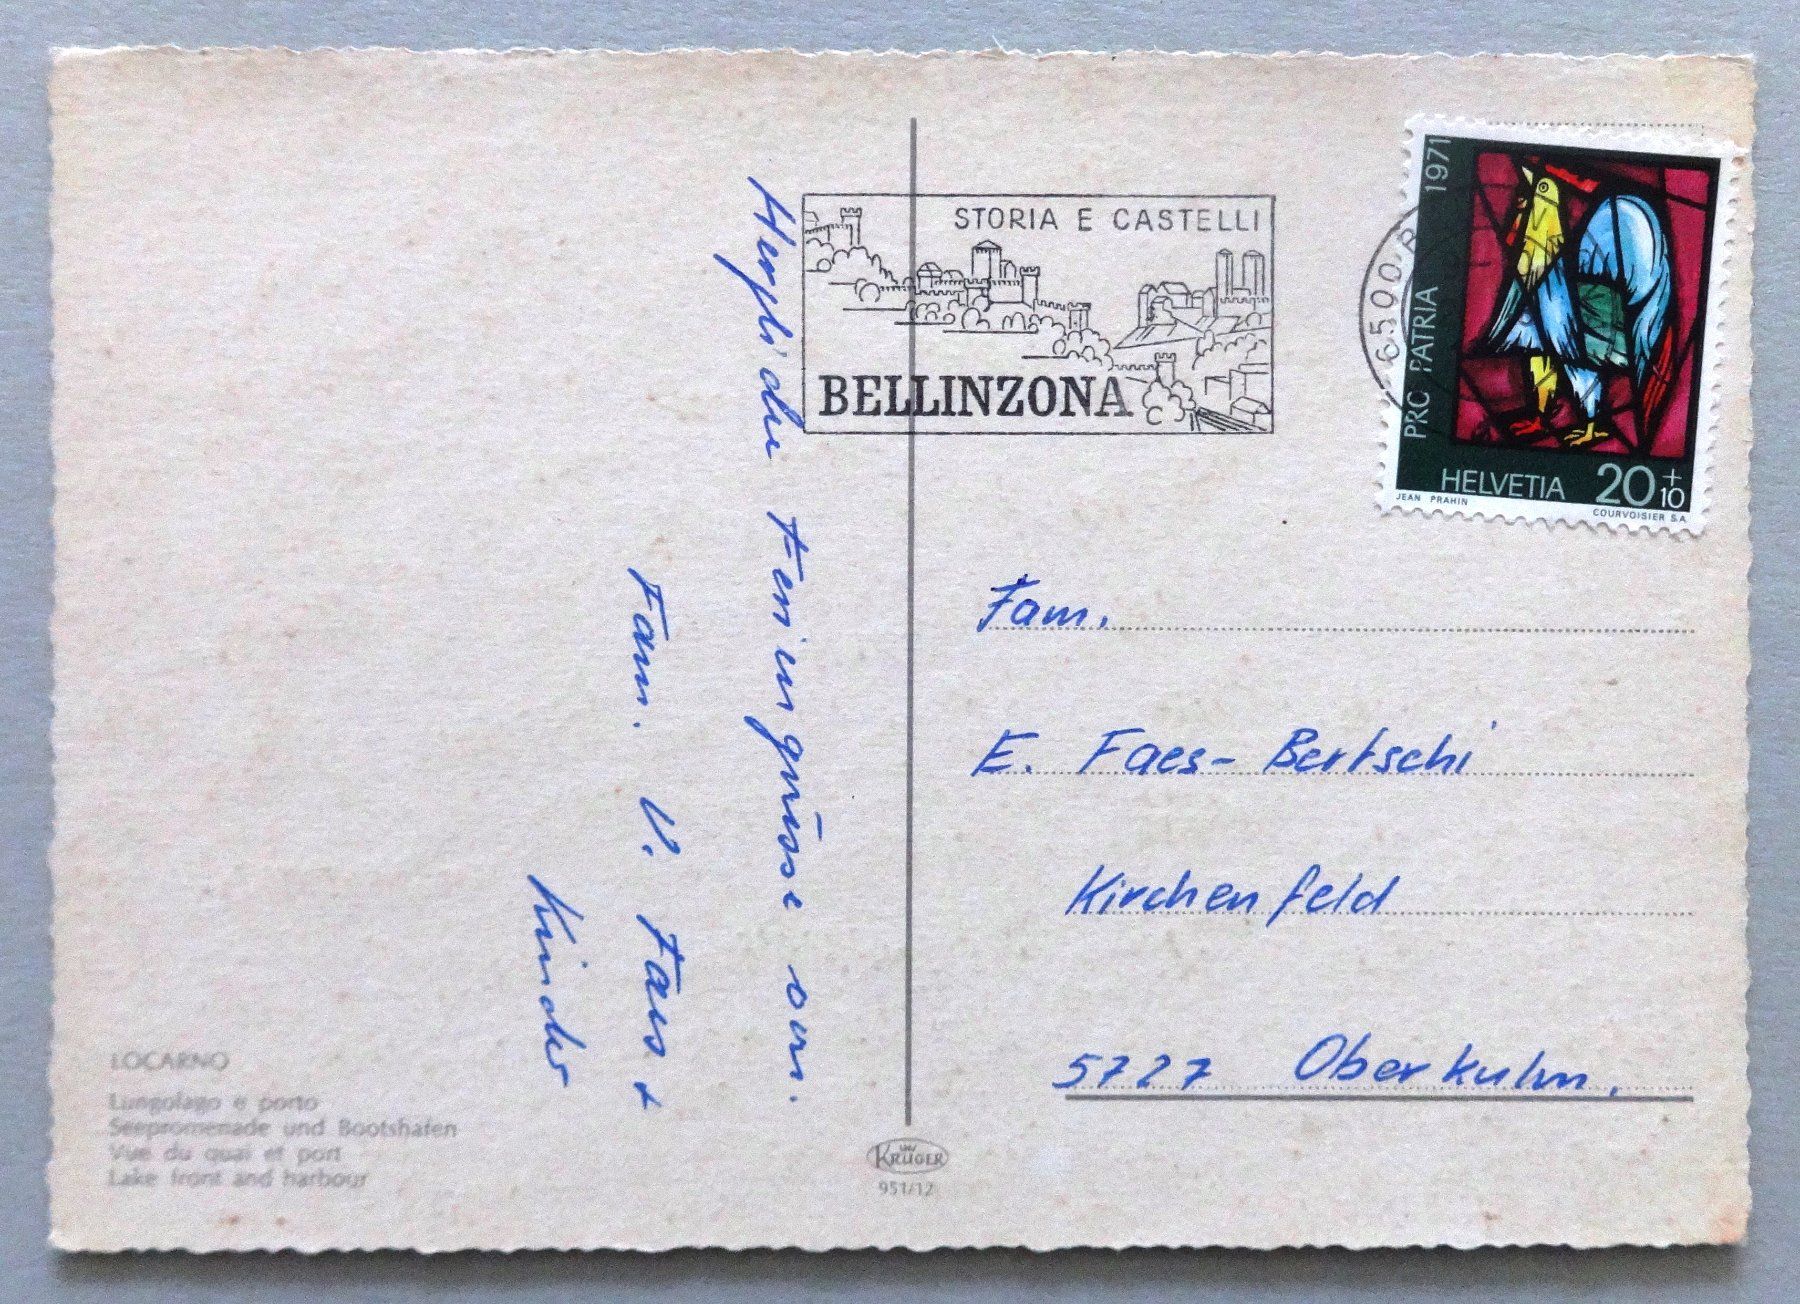 Herzliche Feriengrüsse von
Fam. V. Faes +
Kinder
LOCARNO
Lungolago e porto
Seepromenade und Bootshafen
Vue du quai et port
Lake front and harbour
KRÜGER
951/12
STORIA E CASTELLI
BELLINZONA
6500 B
PRO PATRIA 1971
HELVETIA 20+10
JEAN PRAHIN COURVOISIER S.A.
Fam.
E. Faes-Bertschi
Kirchenfeld
5727 Oberkulm.